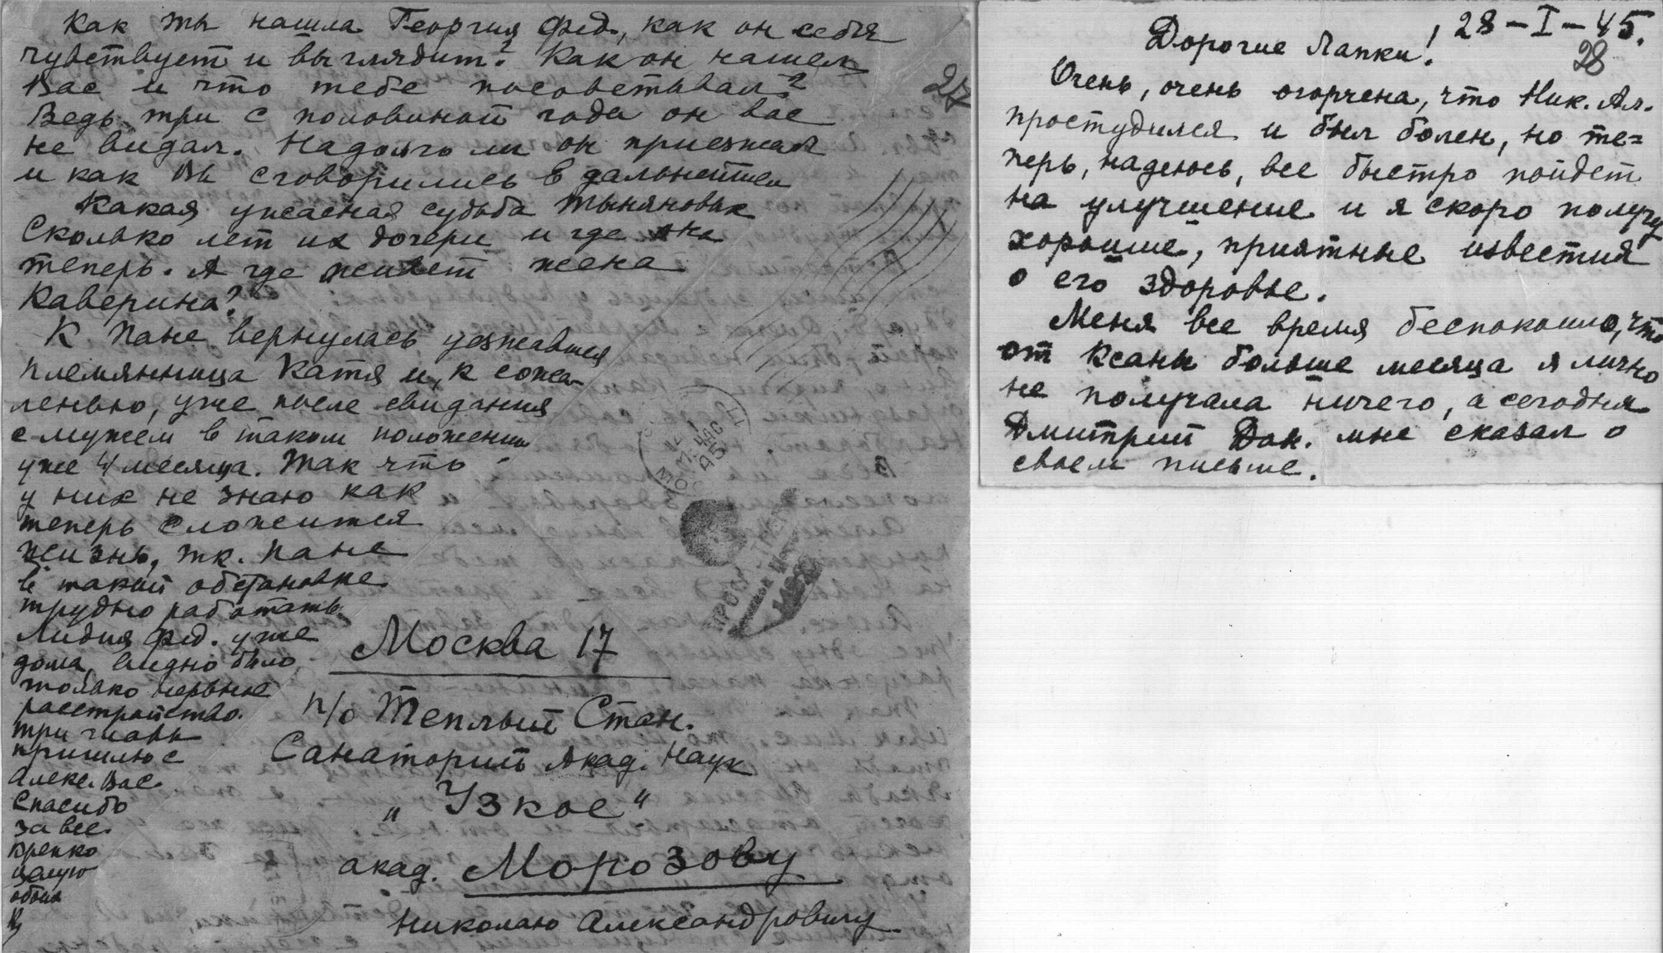 Как ты нашла Георгия Фед., как он себя
чувствует и выглядит? Как он нашел
Вас и что тебе посоветывал?
Ведь три с половиной года он вас
не видал. Надолго ли он приезжал
и как Вы сговорились в дальнейшем
Какая ужасная судьба Тыняновых
Сколько лет их дочери и где она
теперь. А где живет жена
Каверина?
К Пане вернулась уезжавшая
племянница Катя и, к сожа-
ленью, уже после свидания
с мужем в таком положении
уже 4 месяца. Так что
у них не знаю как
теперь сложится
жизнь, тк. Пане
в такой обстановке
трудно работать.
Лидия Фед. уже
дома, видно было
только нервное
расстройство.
Три главы
пришлю с
Алекс. Вас.
Спасибо
за все.
Крепко
целую
обоих
27
Москва 17
п/о Теплый Стан.
Санаторий Акад. Наук
„Узкое“
акад. Морозову
Николаю Александровичу
28-I-45.
28
Дорогие Лапки!
Очень, очень огорчена, что Ник. Ал.
простудился и был болен, но те=
перь, надеюсь, все быстро пойдет
на улучшение и я скоро получу
хорошие, приятные известия
о его здоровье.
Меня все время беспокоило, что
от Ксаны больше месяца я лично
не получала ничего, а сегодня
Дмитрий Дан. мне сказал о
своем письме.